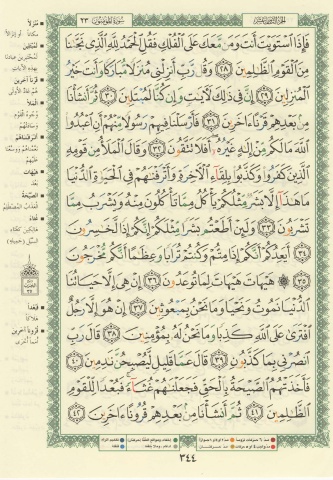 الجزء الثامن عشر
سورة المؤمنون
٢٣
فَإِذَا اسْتَوَيْتَ أَنتَ وَمَن مَّعَكَ عَلَى الْفُلْكِ فَقُلِ الْحَمْدُ لِلَّهِ الَّذِي نَجَّىٰنَا
مِنَ الْقَوْمِ الظَّٰلِمِينَ ٢٨ وَقُل رَّبِّ أَنزِلْنِي مُنزَلًا مُّبَارَكًا وَأَنتَ خَيْرُ
الْمُنزِلِينَ ٢٩ إِنَّ فِي ذَٰلِكَ لَءَايَٰتٍ وَإِن كُنَّا لَمُبْتَلِينَ ٣٠ ثُمَّ أَنشَأْنَا
مِن بَعْدِهِمْ قَرْنًا ءَاخَرِينَ ٣١ فَأَرْسَلْنَا فِيهِمْ رَسُولًا مِّنْهُمْ أَنِ اعْبُدُوا
اللَّهَ مَا لَكُم مِّنْ إِلَٰهٍ غَيْرُهُ أَفَلَا تَتَّقُونَ ٣٢ وَقَالَ الْمَلَأُ مِن قَوْمِهِ
الَّذِينَ كَفَرُوا وَكَذَّبُوا بِلِقَاءِ الْءَاخِرَةِ وَأَتْرَفْنَٰهُمْ فِي الْحَيَوٰةِ الدُّنْيَا
مَا هَٰذَا إِلَّا بَشَرٌ مِّثْلُكُمْ يَأْكُلُ مِمَّا تَأْكُلُونَ مِنْهُ وَيَشْرَبُ مِمَّا
تَشْرَبُونَ ٣٣ وَلَئِنْ أَطَعْتُم بَشَرًا مِّثْلَكُمْ إِنَّكُمْ إِذًا لَّخَٰسِرُونَ
٣٤ أَيَعِدُكُمْ أَنَّكُمْ إِذَا مِتُّمْ وَكُنتُمْ تُرَابًا وَعِظَٰمًا أَنَّكُم مُّخْرَجُونَ
٣٥ هَيْهَاتَ هَيْهَاتَ لِمَا تُوعَدُونَ ٣٦ إِنْ هِيَ إِلَّا حَيَاتُنَا
الدُّنْيَا نَمُوتُ وَنَحْيَا وَمَا نَحْنُ بِمَبْعُوثِينَ ٣٧ إِنْ هُوَ إِلَّا رَجُلٌ
افْتَرَىٰ عَلَى اللَّهِ كَذِبًا وَمَا نَحْنُ لَهُ بِمُؤْمِنِينَ ٣٨ قَالَ رَبِّ
انصُرْنِي بِمَا كَذَّبُونِ ٣٩ قَالَ عَمَّا قَلِيلٍ لَّيُصْبِحُنَّ نَٰدِمِينَ ٤٠
فَأَخَذَتْهُمُ الصَّيْحَةُ بِالْحَقِّ فَجَعَلْنَٰهُمْ غُثَاءً فَبُعْدًا لِّلْقَوْمِ
الظَّٰلِمِينَ ٤١ ثُمَّ أَنشَأْنَا مِن بَعْدِهِمْ قُرُونًا ءَاخَرِينَ ٤٢
٣٤٤